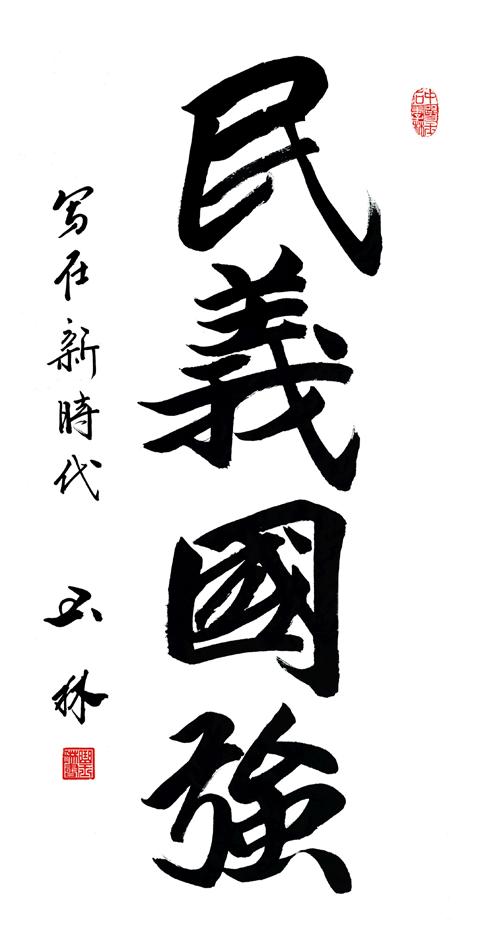 民義國強
写在新時代 玉林